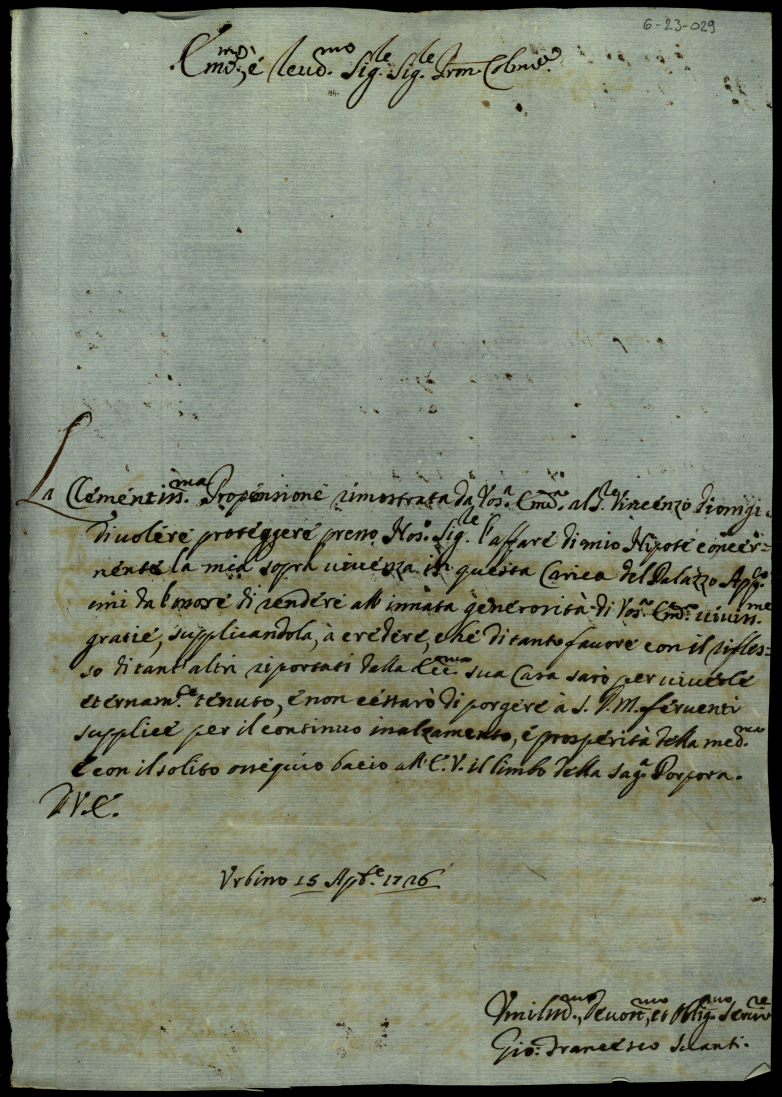 6-23-029
Em.mo, e Reud.mo Sig.le Sig.le Pron Colmo
La Clementiss.ma Propensione rimostrata da Vos.a Em.a al S.r Vincenzo Dionigi
di volere proteggere presso Nos.o Sig.le l'affare di mio Nipote concer=
nente la mia sopra vivenza in questa Carica del Palazzo App.co
mi da l'onore di rendere all'innata generosità di Vos.a Em.a viviss.me
gratie, supplicandola, à credere, che di tanto favore con il rifles=
so di tant'altri riportati dalla Ecc.ma sua Casa sarò per viverle
eternam.te tenuto, e non cessarò di porgere à S. D. M. ferventi
supplice per il continuo inalzamento, e prosperità della med.ma
e con il solito ossequio bacio all'E. V. il limbo della Sag.a Porpora.
D V. E.
Urbino 15 Apb.e 1726
Umiliss.mo, Devot.mo, et Oblig.mo Servi.re
Gio: Francesco